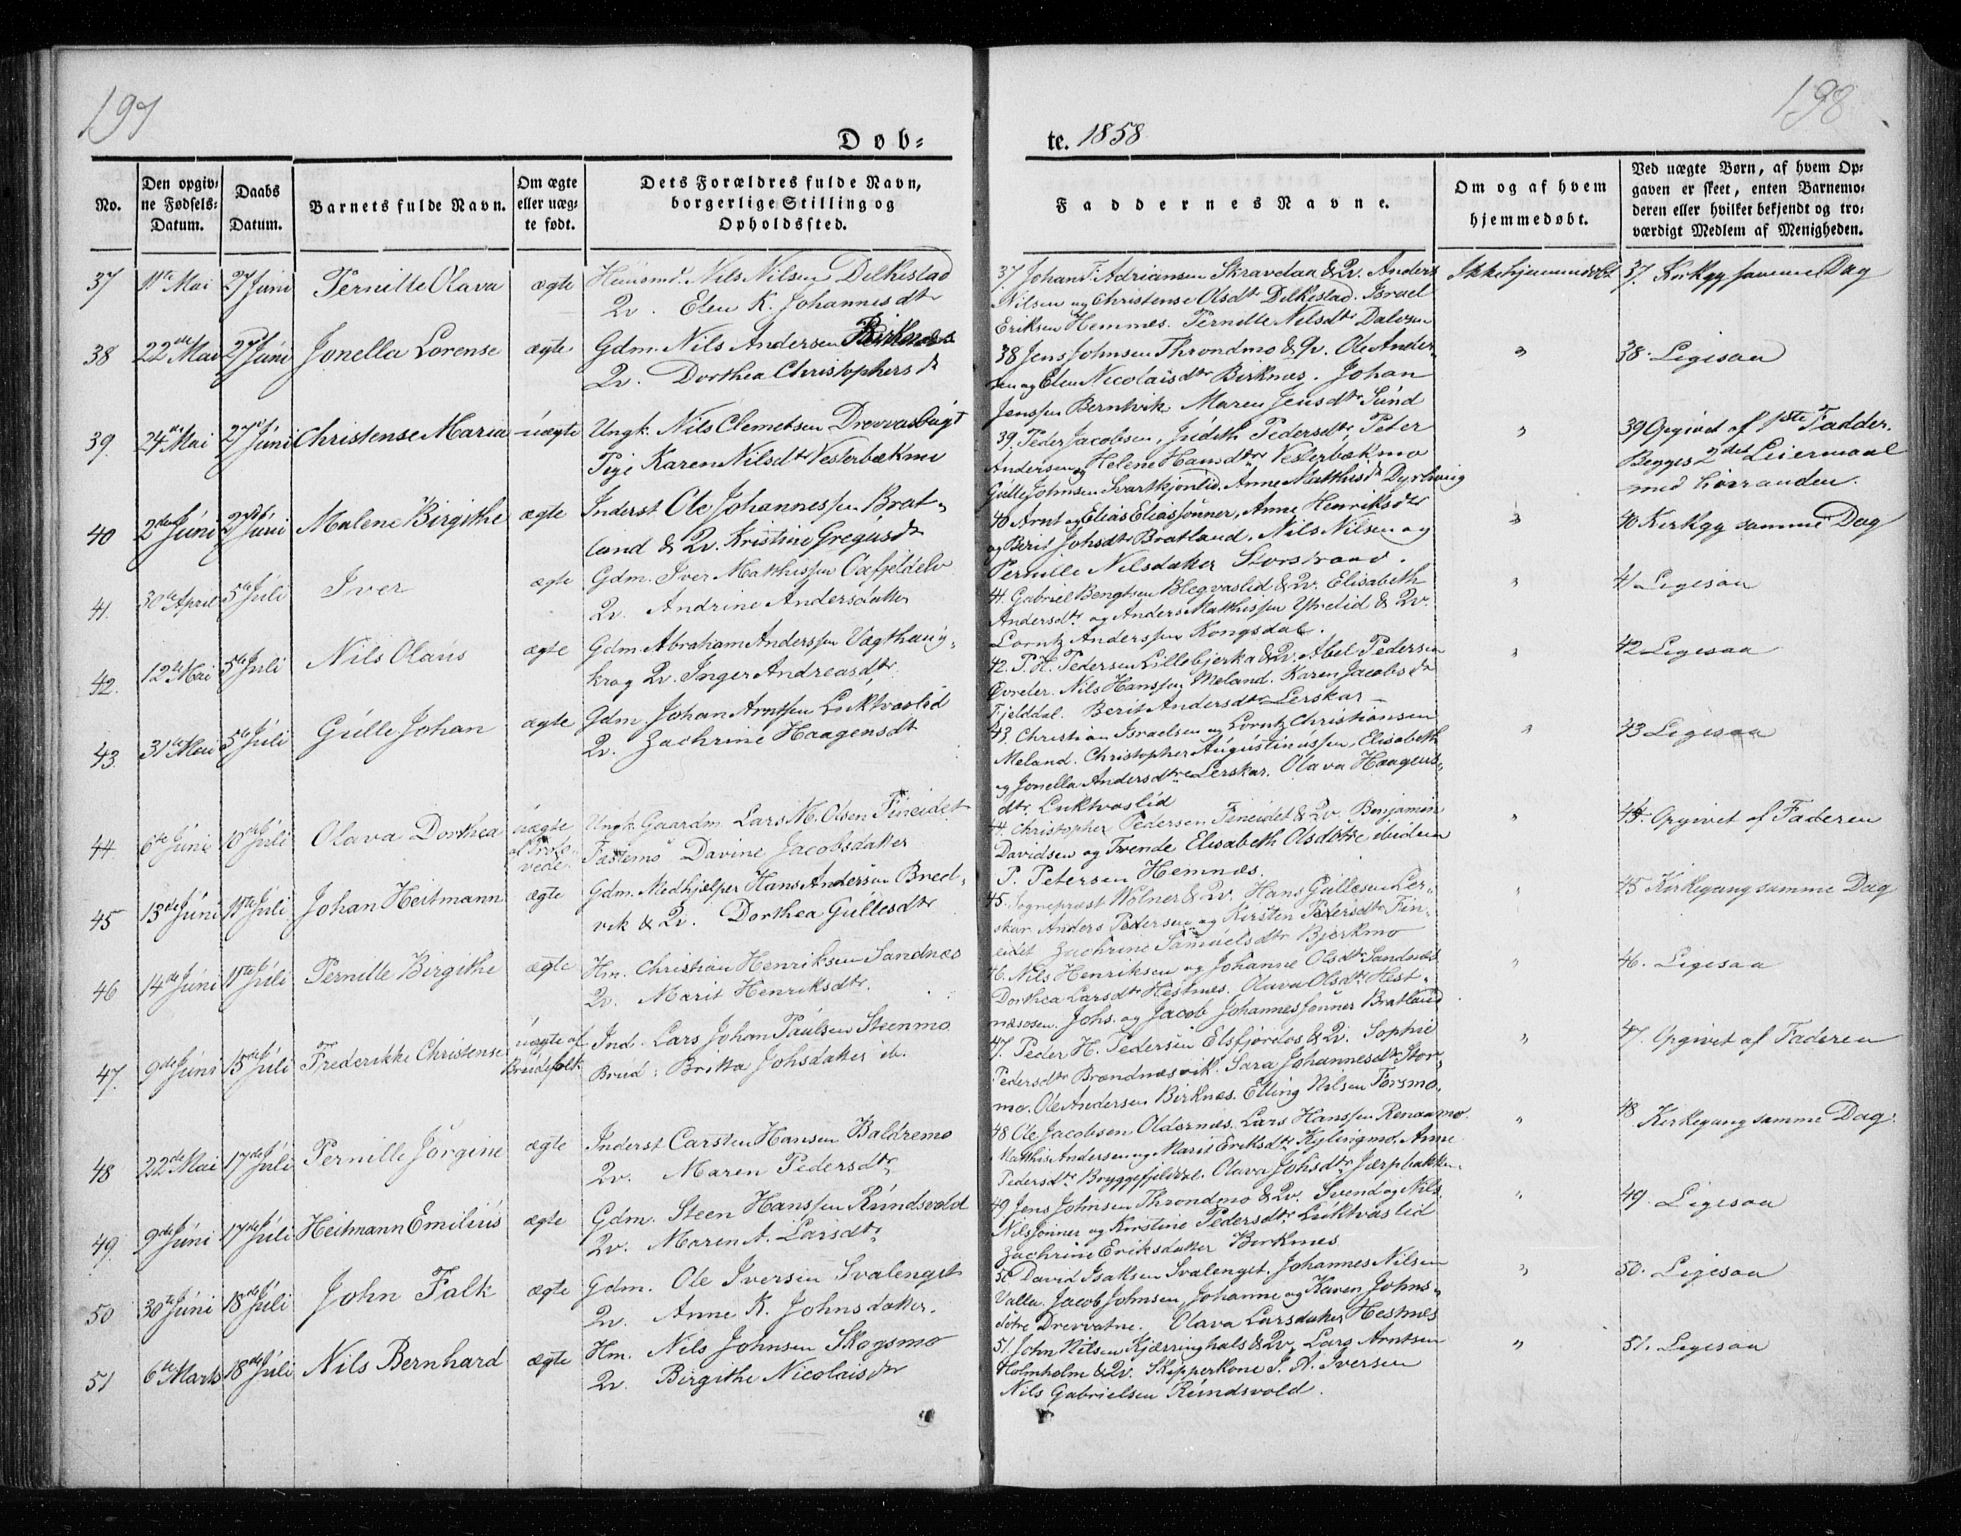 197
198
Døb-
te. 1858
No.
Den opgiv-
ne Fødsels-
Datum.
Daabs
Datum.
Barnets fulde Navn.
Om ægte
eller uæg-
te født.
Dets Forældres fulde Navn,
borgerlige Stilling og
Opholdssted.
Faddernes Navne.
Om og af hvem
hjemmedøbt.
Ved uægte Børn, af hvem Op-
gaven er skeet, enten Barnemo-
deren eller hvilket bekjendt og tro-
værdigt Medlem af Menigheden.
37 11te Mai 27 Juni Pernille Olava ægte Huusmd. Nils Nilsen Dilkestad
Qv. Elen K. Johannisdtr
37. Johan F. Adriansen Skravdaa & Qv. Anders
Nilsen og Christense Olsdtr Dilkestad. Israel
Eriksen Hemmes. Pernille Nilsdtr Dalosen
Ikke hjemmedøbt 37. Kirkeg samme Dag
38 22de Mai 27 Juni Jonella Lorense ægte Gdm. Nils Andersen Birknes
Qv. Dorthea Christophersdr
38 Jens Johnsen Throndmo & Qv. Ole Ander-
sen og Elen Nicolaisdtr Birknes. Johan
Jenssen Berntvik Maren Jensdtr Sund
" 38. Ligesaa
39. 24de Mai 27 Juni Christense Maria uægte Ungk. Nils Clemetsen Drevvas
Pige Karen Nilsdtr Vesterbækmo
39. Peder Jacobsen, Judith Pedersdtr, Peter
Andersen og Helene Hansdtr Vesterbækmo
Gulle Johnsen Svartkjønlid. Anne Matthisdr
" 39 Opgivet af 1ste Fadder.
Begges 2det Leiermaal
med hinanden.
40 2den Juni 27de Juni Malene Birgithe ægte Inderst Ole Johannessen Brat-
land & Qv. Kristine Gregusdr
40 Arnt og Elias Eliassønner, Anne Henriksdtr
og Berit Johsdtr Bratland. Nils Nilsen og
Pernille Nilsdatter Storstrand.
" 40 Kirkeg samme Dag
41. 30te April 5te Juli Iver ægte Gdm. Iver Matthissen Oxfjeldelv
Qv. Andrine Andersdatter
41. Gabriel Bengtsen Blegvaslid & Qv. Elisabeth
Andersdtr og Anders Matthissen Ystelid & Qv.
Lorntz Anderssen Kongsdal.
" 41 Ligesaa
42. 12te Mai 5te Juli Nils Olaus ægte Gdm Abraham Anderssen Vagthaug-
krog Qv. Inger Andreasdtr
42. P. H. Pedersen Lillebjerka & Qv. Abel Pedersen
Øvreler. Nils Hanssen Meland. Karen Jacobsdr
Fjelddal. Berit Andersdtr Lerskar
" 42 Ligesaa
43. 31te Mai 5te Juli Gulle Johan ægte Gdm. Johan Arntsen Luktvaslid
Qv. Zachrine Haagensdt
43. Christian Israelsen og Lorntz Christiansen
Meland. Christopher Augustinussen, Elisabeth
og Jonella Andersdtre Lerskar. Olava Haagens-
dtr Luktvaslid
" 43 Ligesaa
44. 6te Juni 10de Juli Olava Dorthea uægte
af Trolo-
vede. Ungk. Gaardm. Lars M. Olsen Fineidet
Fæstemø Davine Jacobsdatter
44. Christopher Pedersen Fineidet & Qv. Benjamin
Davidsen og Trende Elisabeth Olsdtre ibidem
P. Petersen Hemnæs.
" 44. Opgivet af Faderen
45 13de Juni 11te Juli Johan Heitmann ægte Gdm. Medhjælper Hans Andersen Bred-
vik & Qv. Dorthea Gullesdtr
45. Sognepræst Wolner & Qv. Hans Gullesen Ler-
skar Anders Pedersen og Kirsten Pedersdtr Fin-
eidet Zachrine Samuelsdtr Bjerkmo
" 45 Kirkegang samme Dag
46 14de Juni 11te Juli Pernille Birgithe ægte Hm. Christian Henriksen Sandnes
Qv. Marit Henriksdtr.
46. Nils Henriksen og Johanne Olsdtr Sandnes
Dorthea Larsdtr Hestnes. Olava Olsdtr Hest-
næsosen. Johs. og Jacob Johannessønner Bratland
" 46. Ligesaa
47. 9de Juni 15de Juli Frederikke Christense uægte af
Brudefolk Ind. Lars Johan Paulsen Steenmo
Brud: Britta Johsdatter ib.
47. Peder H. Pedersen Elsfjordos & Qv. Sophie
Pedersdtr Brændnæsvik. Sara Johannesdtr Stor-
mo. Ole Andersen Birknæs. Elling Nilsen Forsmo.
" 47. Opgivet af Faderen
48 22de Mai 17de Juli Pernille Jørgine ægte Inderst Carsten Hansen Baldremo
Qv. Maren Pedersdtr
48 Ole Jacobsen Oldernæs. Lars Hanssen Renaamo.
Matthis Andersen og Marit Eriksdtr Kylingmo. Anne
Pedersdtr Bryggefjelddal. Olava Johsdtr Jærpbakken.
" 48 Kirkegang samme Dag.
49. 9de Juni 17de Juli Heitmann Emilius ægte Gdm. Steen Hanssen Rundsvold
Qv. Maren A. Larsdtr
49 Jens Johnsen Throndmo & Qv. Svend og Nils
Nilssønner og Kirstine Pedersdtr Luktvaslid
Zachrine Eriksdatter Birknes
" 49. Ligesaa
50 30te Juni 18de Juli John Falk ægte Gdm. Ole Iversen Svalenget
Qv. Anne K. Johnsdatter.
50 David Isaksen Svalenget. Johannes Nilsen
Valla. Jacob Johnsen, Johanne og Karen Johns-
døtre Drevvatne. Olava Larsdatter Hestnes
" 50. Ligesaa
51 6te Marts 18de Juli Nils Bernhard ægte Hm. Nils Johnsen Skogsmo
Qv. Birgithe Nicolaisdtr
51. John Nilsen Kjærringhals & Qv. Lars Arntsen
Holmholm & Qv. Skipperkone J. A. Iversen
Nils Gabrielsen Rundsvold.
" 51. Ligesaa